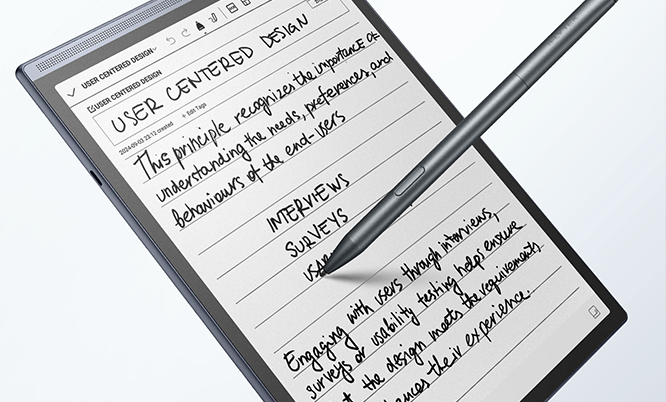 USER CENTERED DESIGN
USER CENTERED DESIGN
USER CENTERED DESIGN
2024-09-03 23:12 created + Edit Tags
This principle recognizes the importance of
understanding the needs, preferences, and
behaviours of the end-users
INTERVIEWS
SURVEYS
Engaging with users through interviews,
surveys or usability testing helps ensure
the design meets the requirements
their experience.